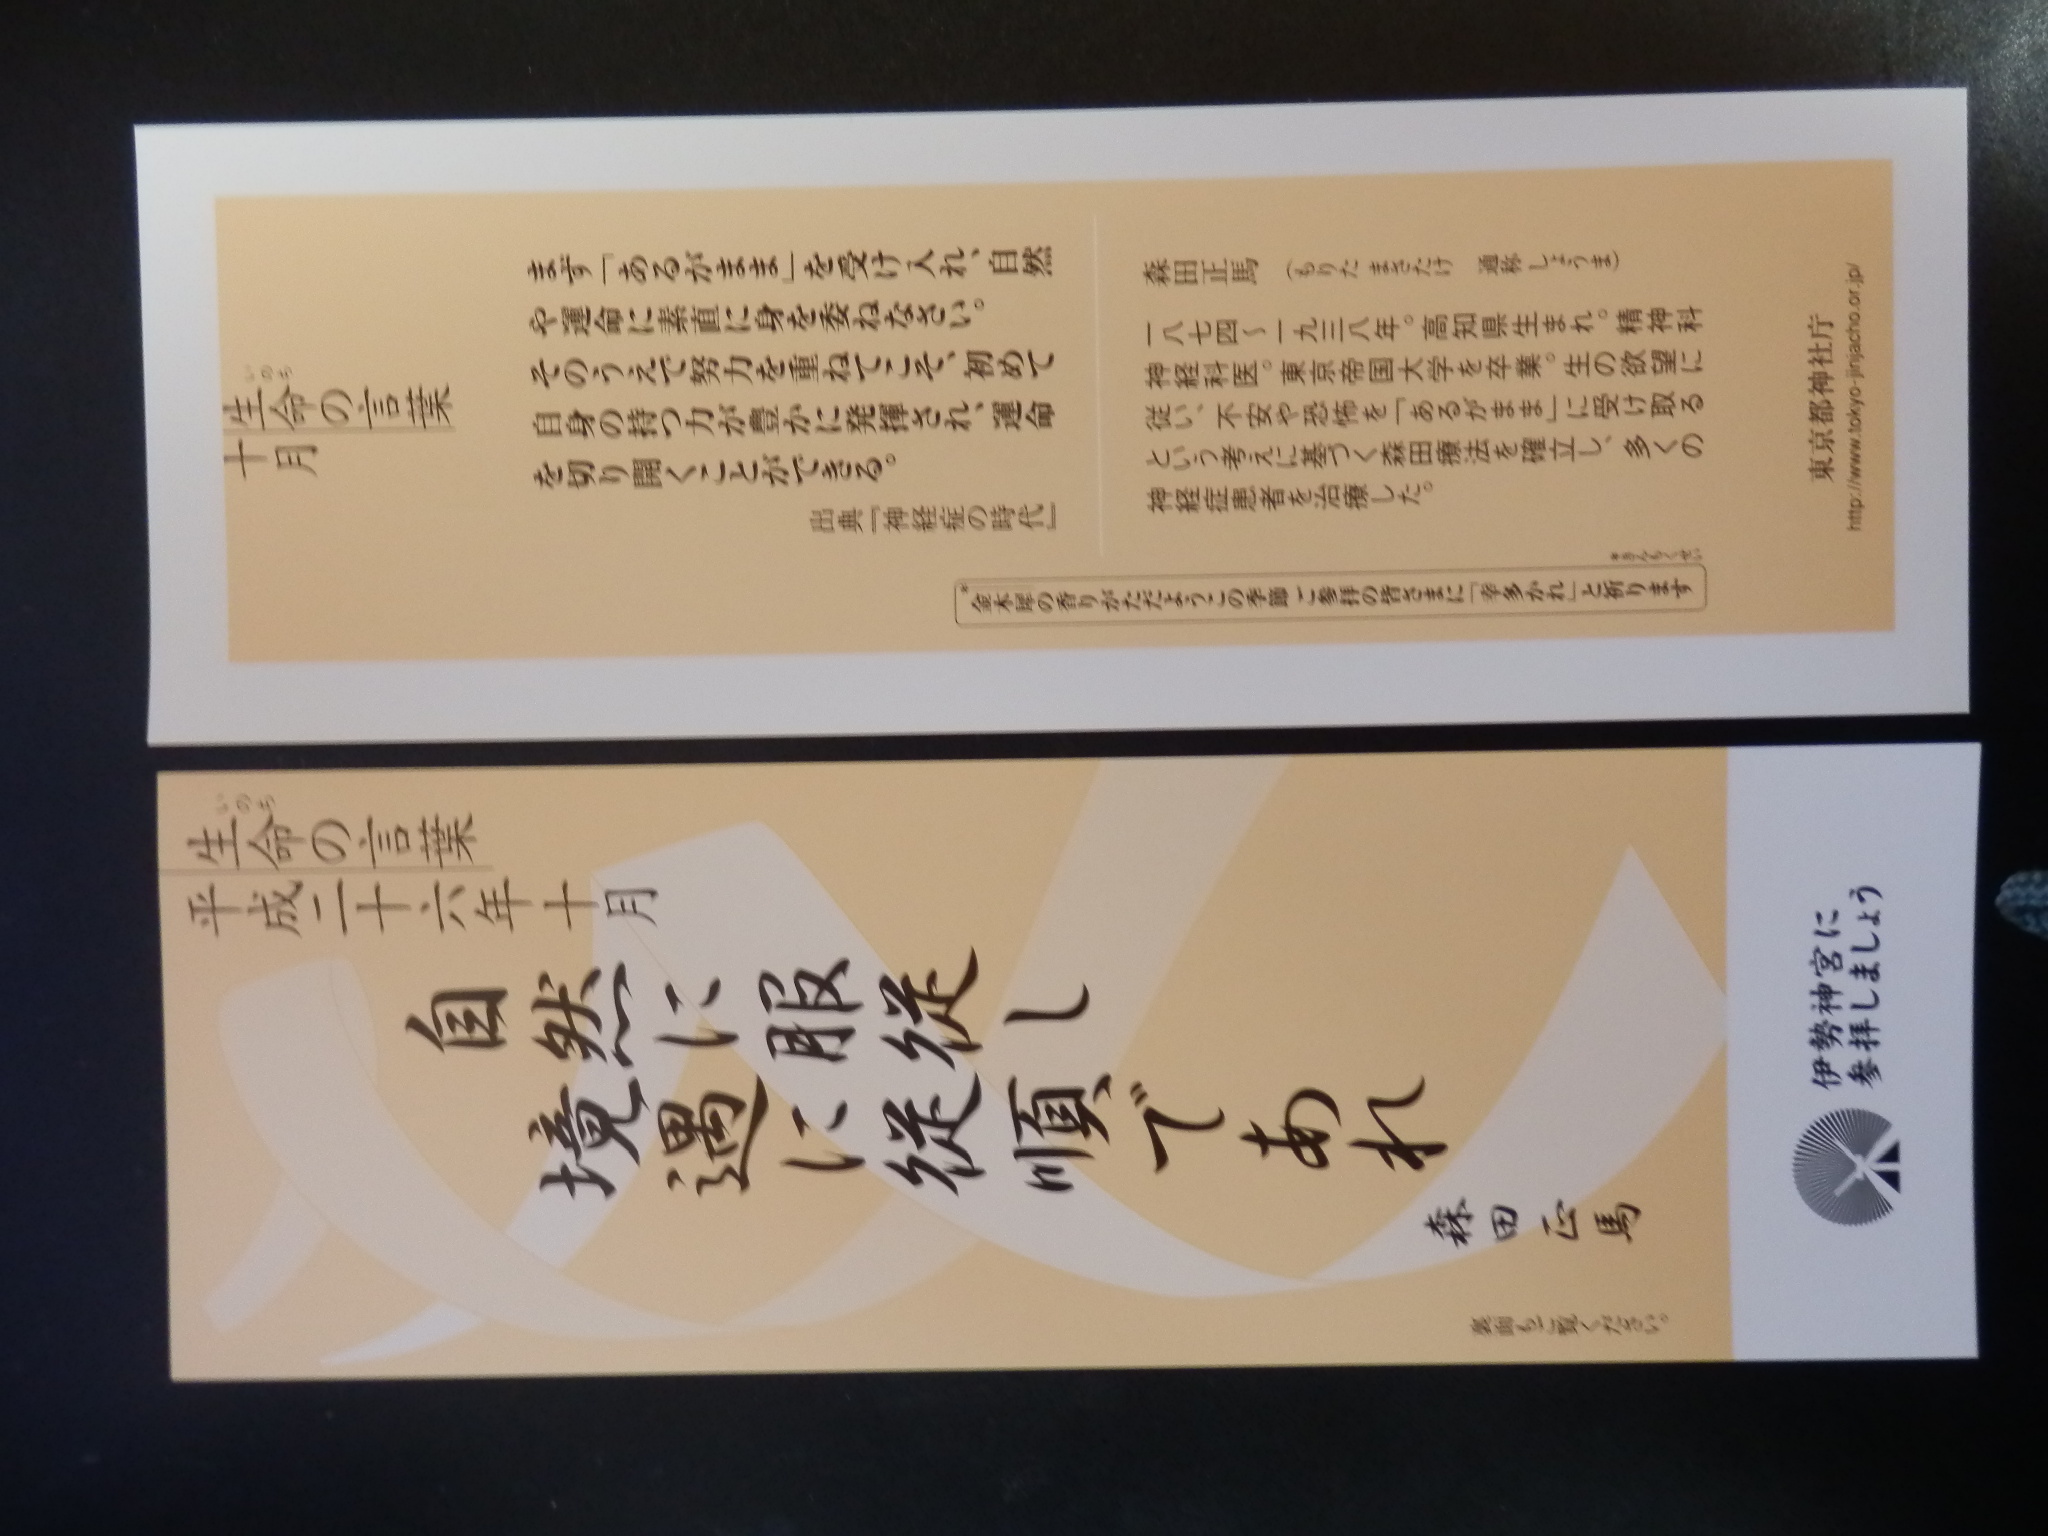 生命の言葉
いのち
十月
まず「あるがまま」を受け入れ、自然
や運命に素直に身を委ねなさい。
そのうえで努力を重ねてこそ、初めて
自身の持つ力が豊かに発揮され、運命
を切り開くことができる。
出典『神経症の時代』
森田正馬（もりた まさたけ 通称 しょうま）
一八七四〜一九三八年。高知県生まれ。精神科
神経科医。東京帝国大学を卒業。生の欲望に
従い、不安や恐怖を「あるがまま」に受け取る
という考えに基づく森田療法を確立し、多くの
神経症患者を治療した。
*きんもくせい
*金木犀の香りがただようこの季節 ご参拝の皆さまに「幸多かれ」と祈ります
東京都神社庁
http://www.tokyo-jinjacho.or.jp/
生命の言葉
いのち
平成二十六年十月
自然に服従し
境遇に従順であれ
森田正馬
裏面もご覧ください。
伊勢神宮に
参拝しましょう